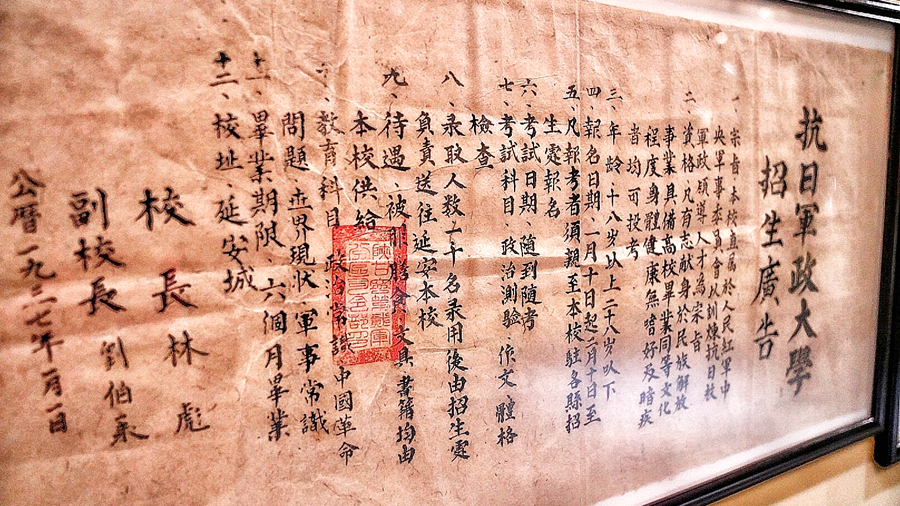 抗日軍政大學
招生廣告
一、宗旨本校直屬於人民紅軍中
央軍事委員會以訓煉抗日
軍政領導人才為宗旨
二、資格凡有志献身於民族解放
事業具備高校畢業同等文化
程度身體健康無嗜好及暗疾
者均可投考
三、年齡、十八岁以上二十八岁以下
四、報名日期、一月十日起二月十日至
五、凡報考者須親至本校駐各縣招
生處報名
六、考試日期、隨到隨考
七、考試科目、政治測驗、作文、體格
檢查
八、录取人数一千名录用後由招生處
負責送往延安本校
九、待遇、被服膳食、文具書籍均由
本校供給
十、教育科目、政治常識、中國革命
問題、世界現状、軍事常識
十一、畢業期限、六個月畢業
十二、校址、延安城
校長 林彪
副校長 劉伯承
公曆一九三七年一月一日